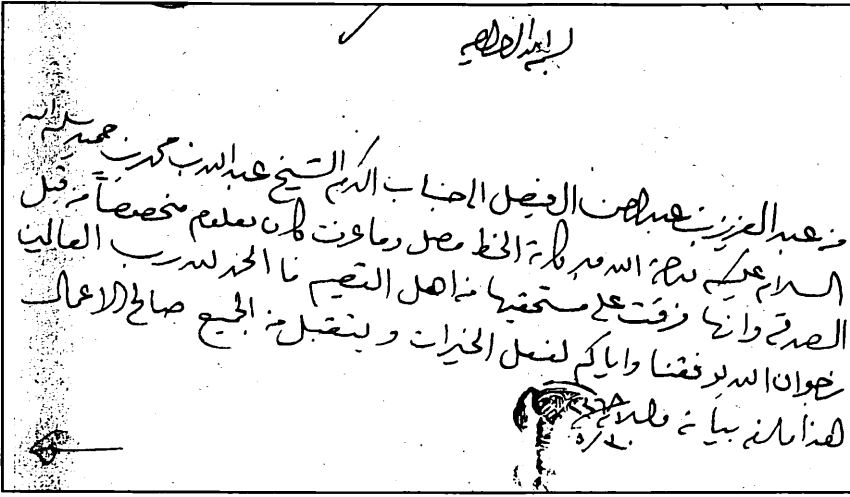 بسم الله الرحمن الرحيم
من عبد العزيز بن عبد الرحمن الفيصل الى جناب المكرم الشيخ عبد الله بن محمد بن حميد سلمه الله
السلام عليكم ورحمة الله وبركاته الخط وصل وما عرفت كان معلوم مخصوصاً من قبل
الصدقه وانها فرقت على مستحقيها من اهل القصيم فا الحمد لله رب العالمين
نرجوا ان الله يوفقنا واياكم لفعل الخيرات و يتقبل من الجميع صالح الاعمال
هذا ما لزم بيانه والسلام